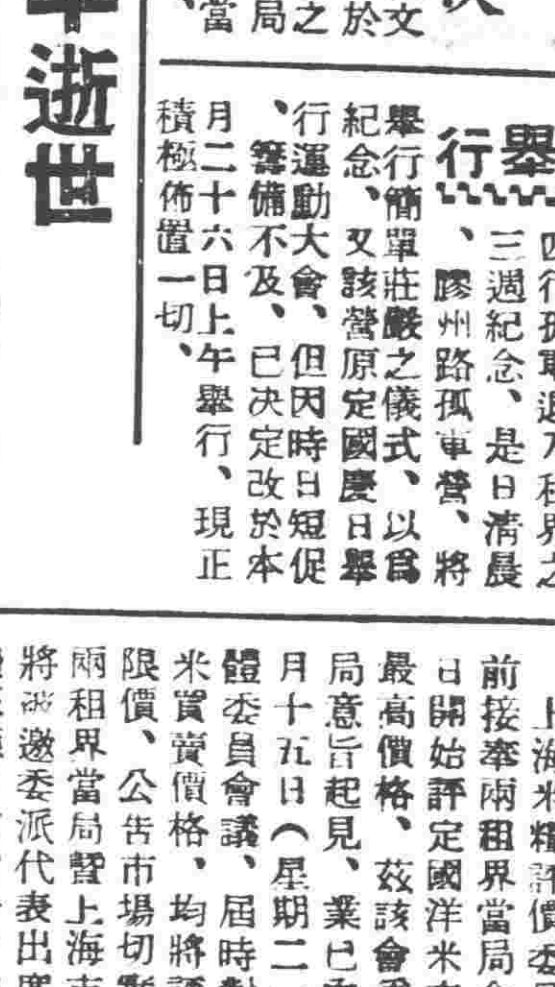 文
於
之
局
當
逝世
舉
行
四行孤軍退入租界之
三週紀念、是日清晨
、膠州路孤軍營、將
舉行簡單莊嚴之儀式、以爲
紀念、又該營原定國慶日舉
行運動大會、但因時日短促
、籌備不及、已决定改於本
月二十六日上午舉行、現正
積極佈置一切、
上海米糧評價委
前接奉兩租界當局
日開始評定國洋米
最高價格、茲該會
局意旨起見、業已
月十五日(星期二
體委員會議、屆時
米買賣價格、均將
限價、公告市場切
兩租界當局暨上海
將邀委派代表出席